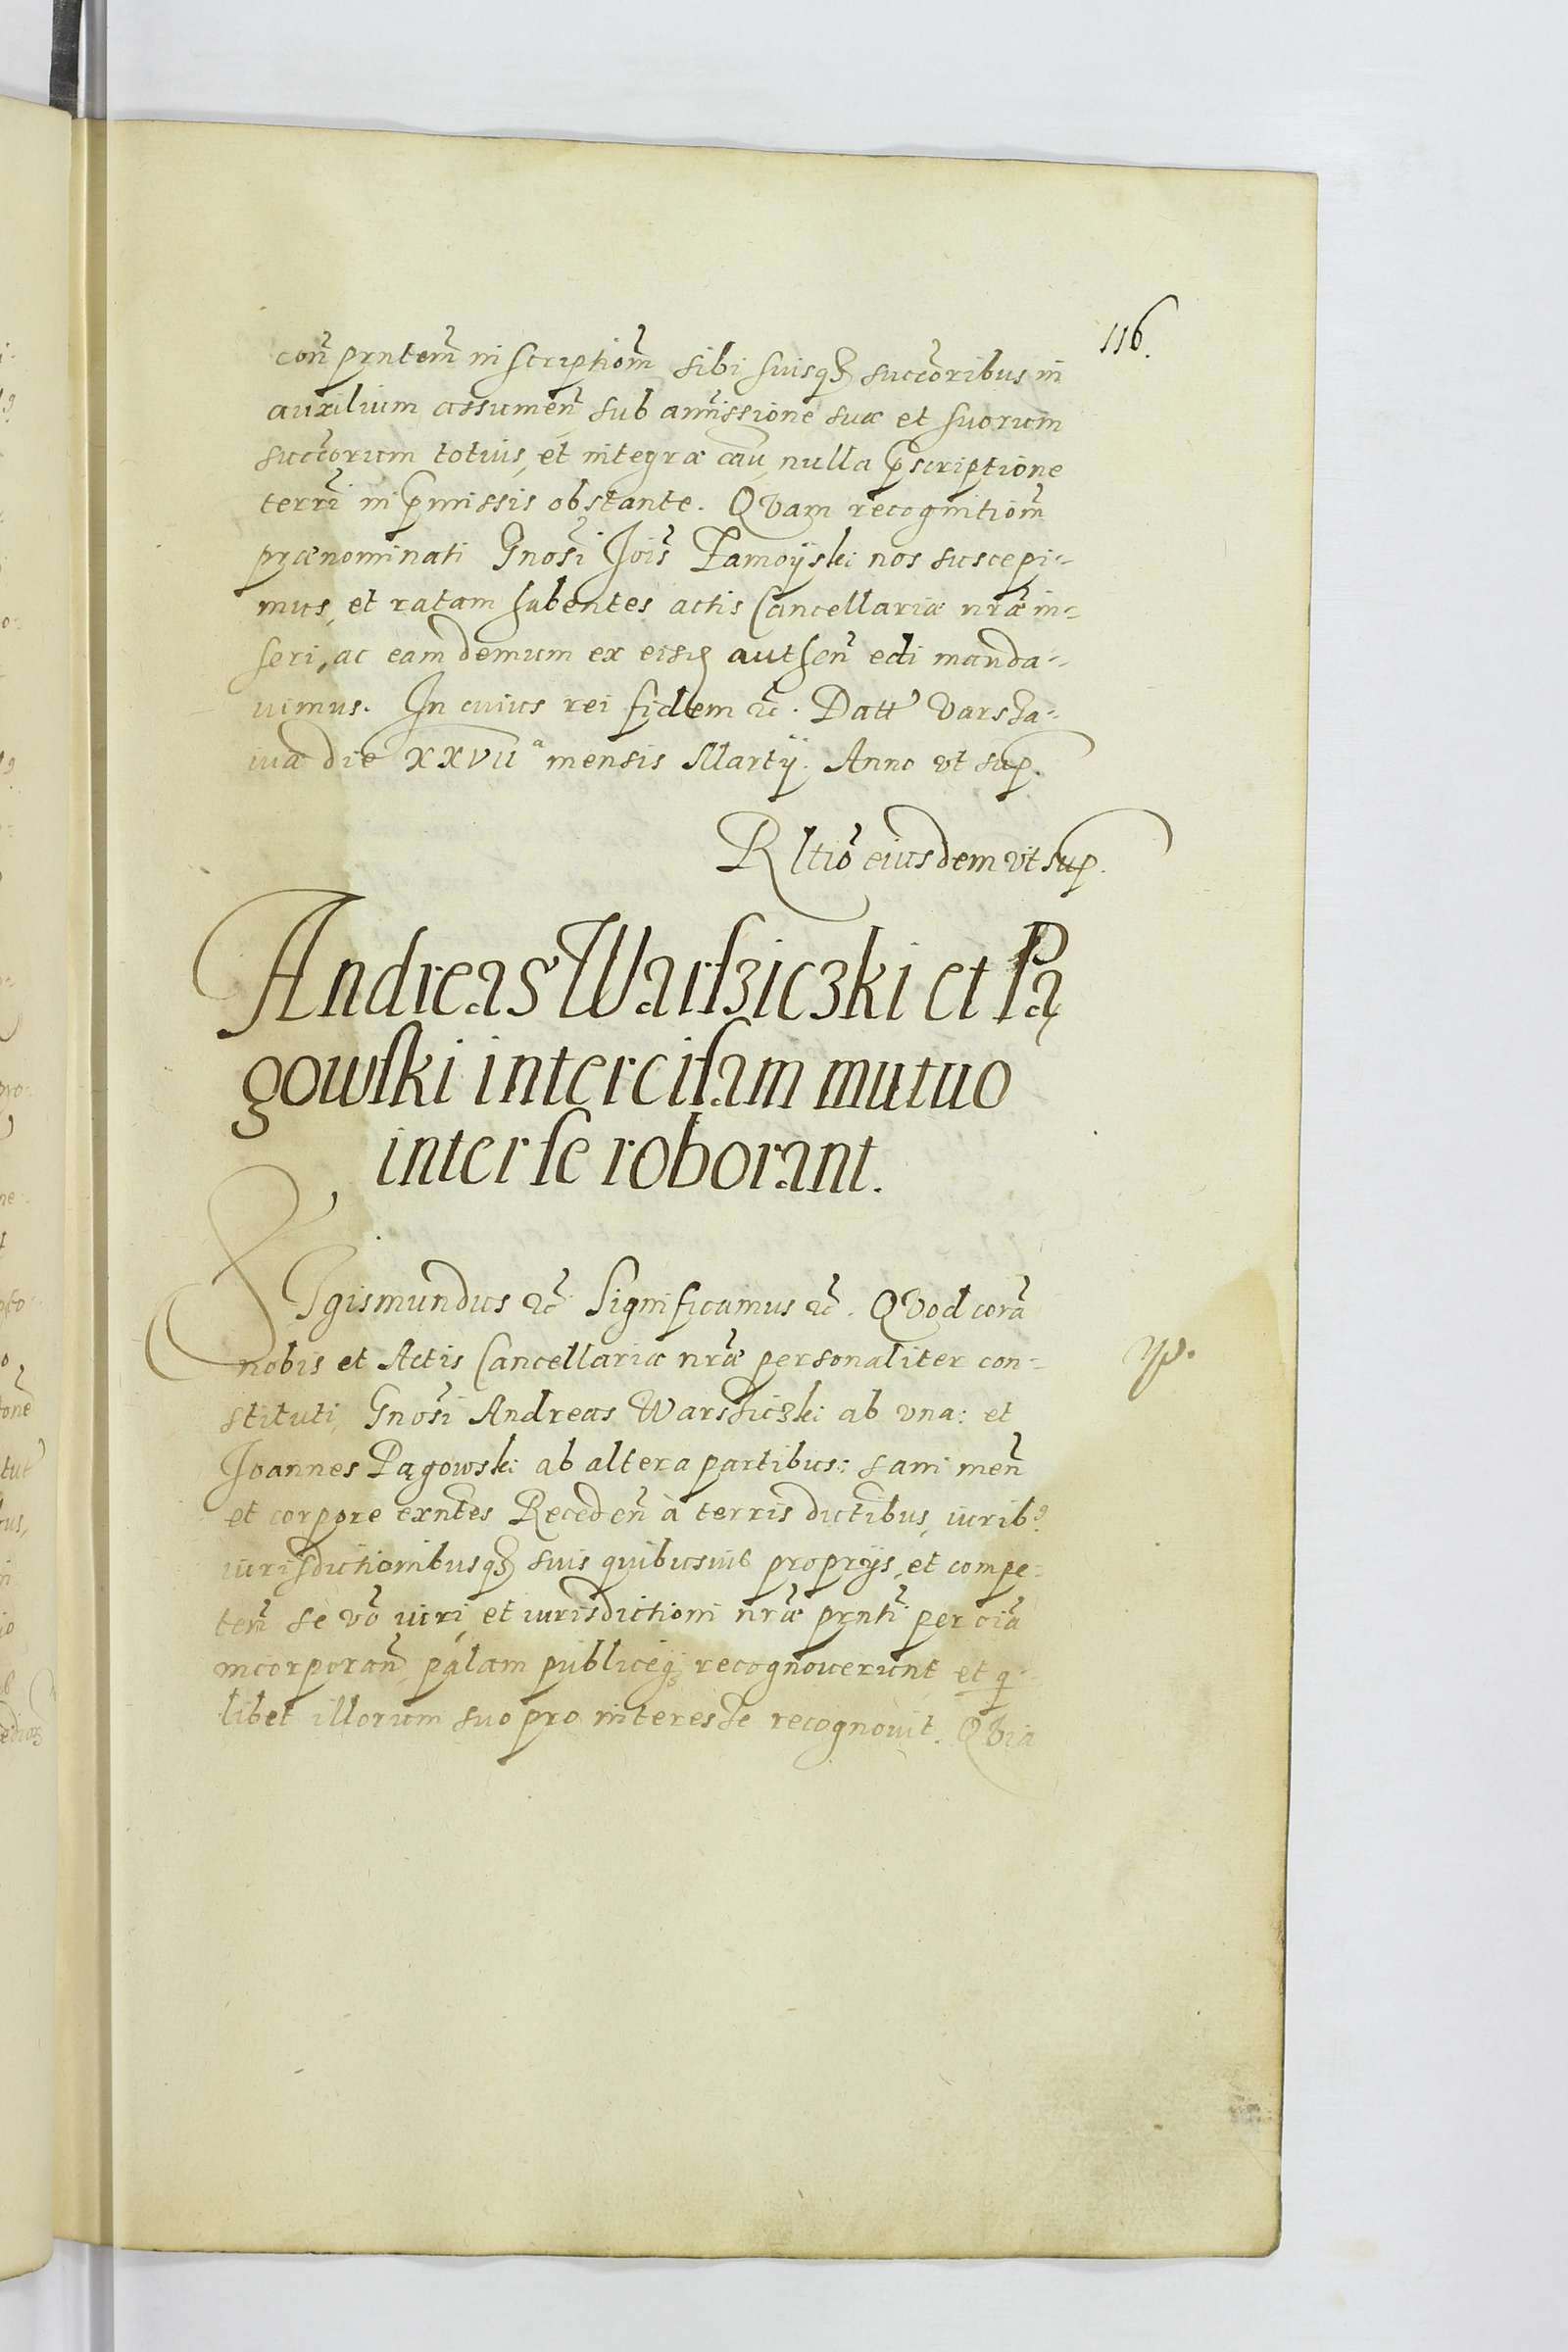 116.
con̄ prntem̄ inscriptiom̄ sibi suisqꝫ succoribus in
auxilium assumen̄ sub amissione suæ et suorum
succorum totius, et integræ cau, nulla p̄scriptione
terrī in p̄missis obstante. QVam recognitiom̄
prænominati Gnosi Jois̄ Zamoyski nos suscepi-
mus, et ratam habentes actis Cancellariæ nræ in-
seri, ac eam demum ex eisd authen̄ edi manda-
uimus. In cuius rei fidem &c̄. Datt Varsha-
uiæ die XXVII a mensis Martij. Anno vt sup.
Rltiō eiusdem vt sup.
Andreas Warsziczki et Pą
gowski intercisam mutuo
inter se roborant.
SIgismundus &c̄ Significamus &c̄. QVod corā
nobis et Actis Cancellariæ nræ personaliter con-
stituti, Gnosi Andreas Warsziczki ab vna: et
Joannes Pągowski ab altera partibus: sani men̄
et corpore exn̄tes Receden̄ à terris dictibus, iurib9
iurisdictionibusqꝫ suis quibusuis proprijs, et compe-
ten̄ se vō iuri, et iurisdictioni nræ prntī per oiā
incorporan̄ palam publiceqꝫ recognouerunt et q-
libet illorum suo pro interesse recognouit. QVia